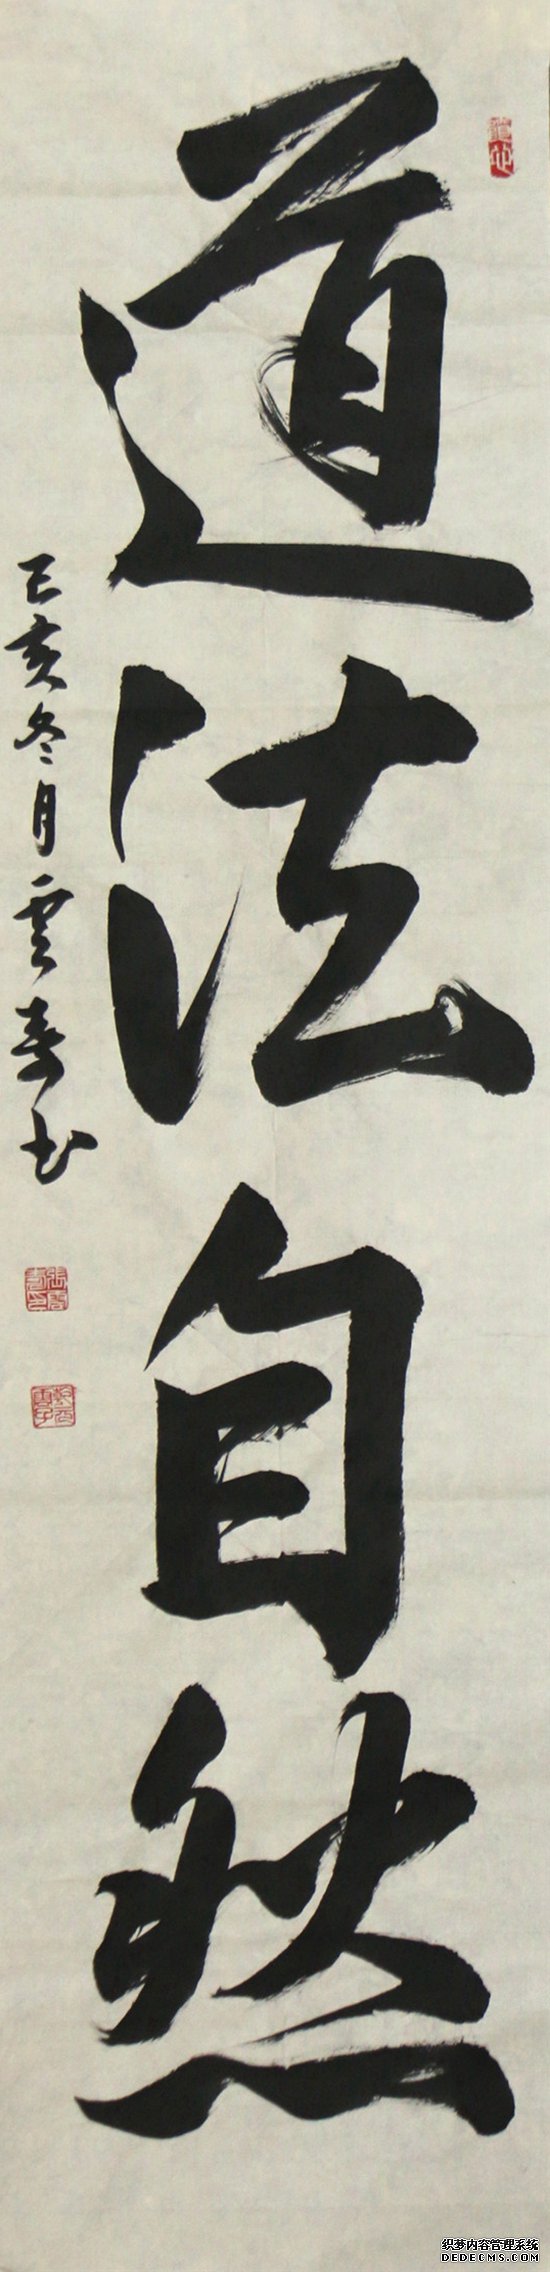 道法自然
己亥冬月雲壽書
织梦内容管理系统
DEDECMS.COM